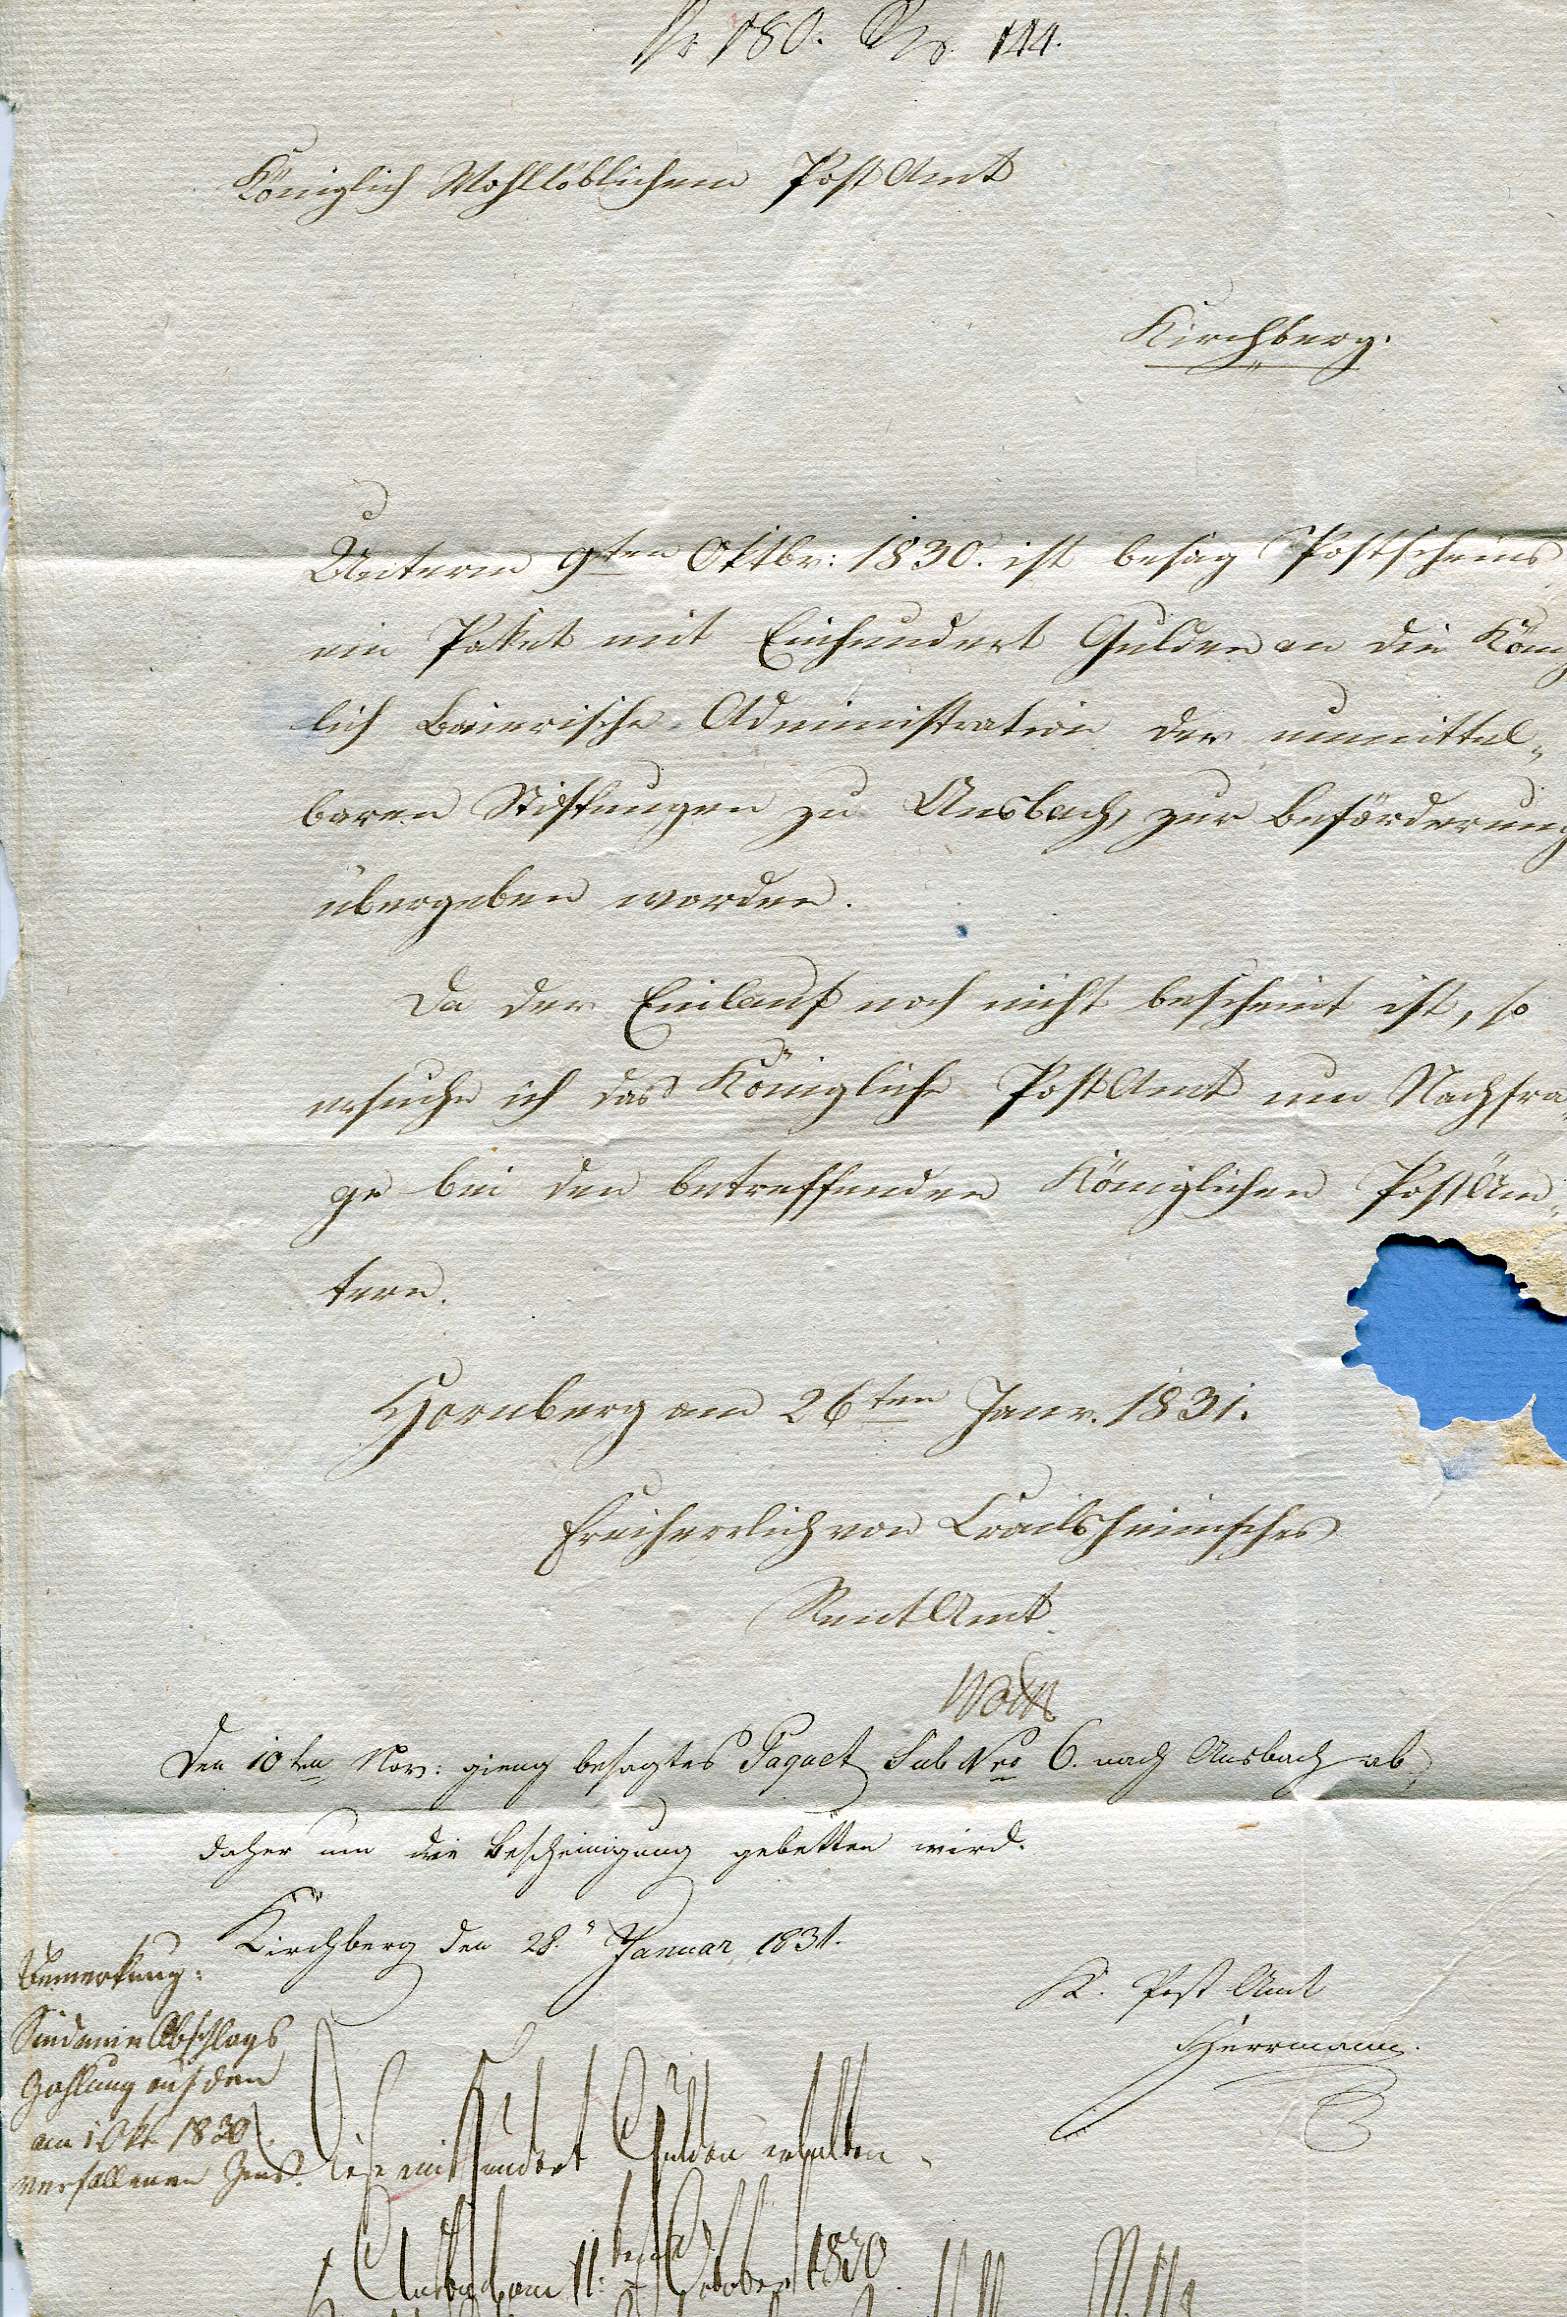 180. No. 144.
Königlich Wohllöblichem Post Amt
Kirchberg.
Unterm 9ten Oktbr: 1830. ist besag Postscheins
ein Paket mit Einhundert Gulden an die König
lich Baierische Administration der unmittel„
baren Stiftungen zu Ansbach, zur Beförderung
übergeben worden.
Da der Einlauf noch nicht bescheint ist, so
ersuche ich das Königliche Post Amt um Nachfra„
ge bei den betreffenden Königlichen Post Äm„
tern.
Hornberg am 26ten Janr. 1831.
Freiherrlich von Crailsheimisches
Rent Amt
Den 10ten Nov: gieng besagtes Paquet sub Nro 6. nach Ansbach ab,
daher um die Bescheinigung gebetten wird.
Kirchberg den 28. Januar 1831.
K. Post Amt
Herrmann.
Bemerkung:
Sind eine Abschlags
Zahlung auf den
am 1 Okt 1830
verfallenen Zins.
Diese einhundert Gulden erhalten
Ansbach am 11ten October 1830